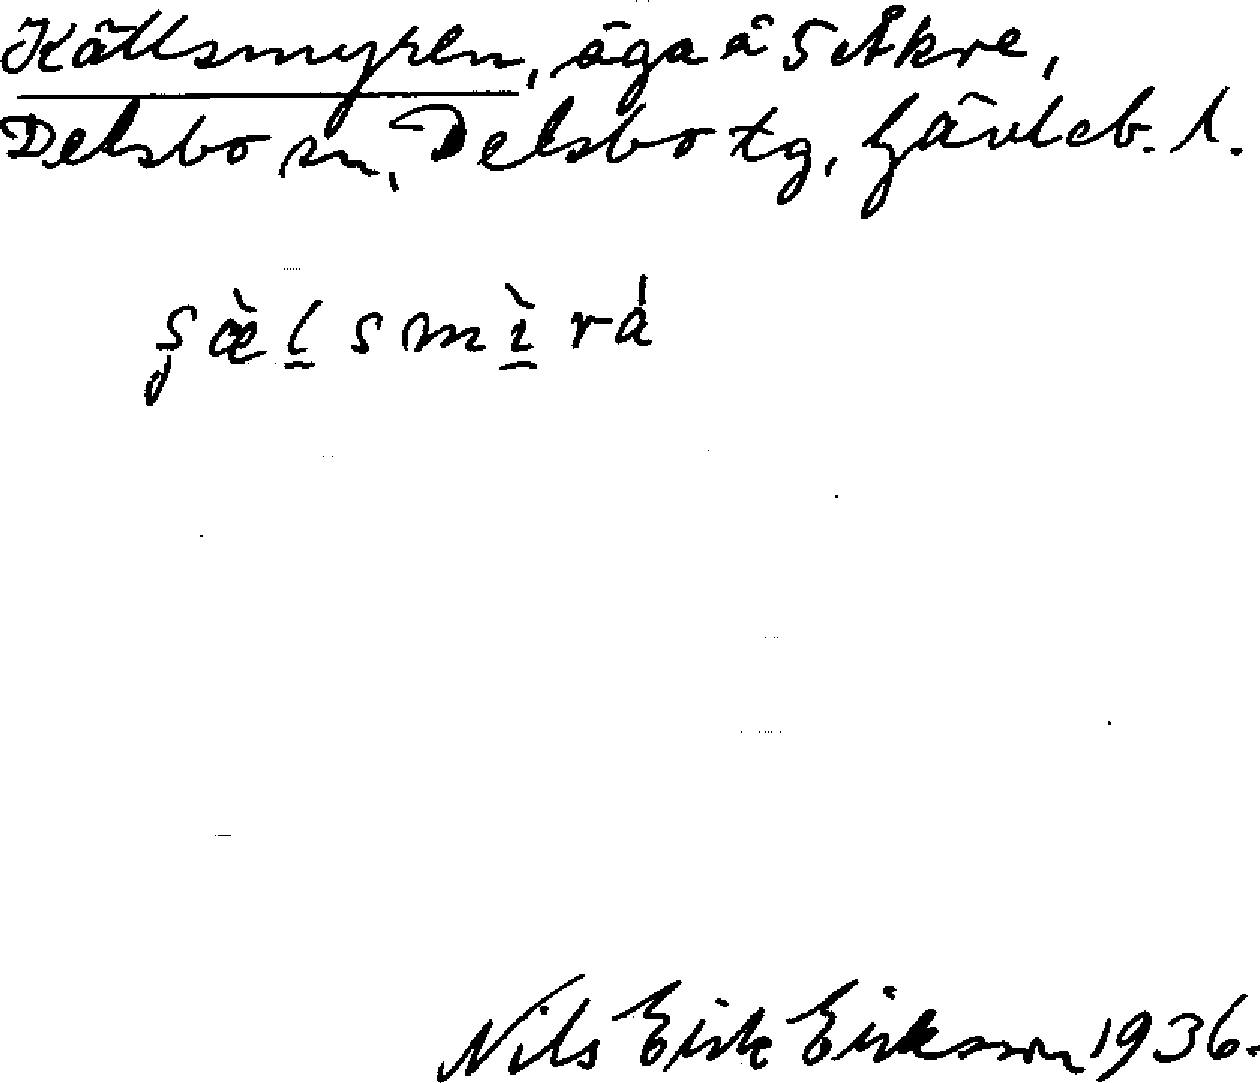 Källsmyren, äga å 5 Åkre,
Delsbo sn, Delsbo tg, Gävleb. l.
Nils Erik Eriksson 1936.